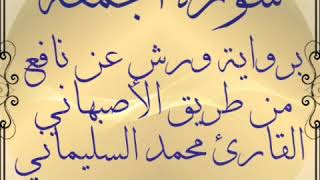 سورة الجمعة
برواية ورش عن نافع
من طريق الأصبهاني
القارئ محمد السليماني